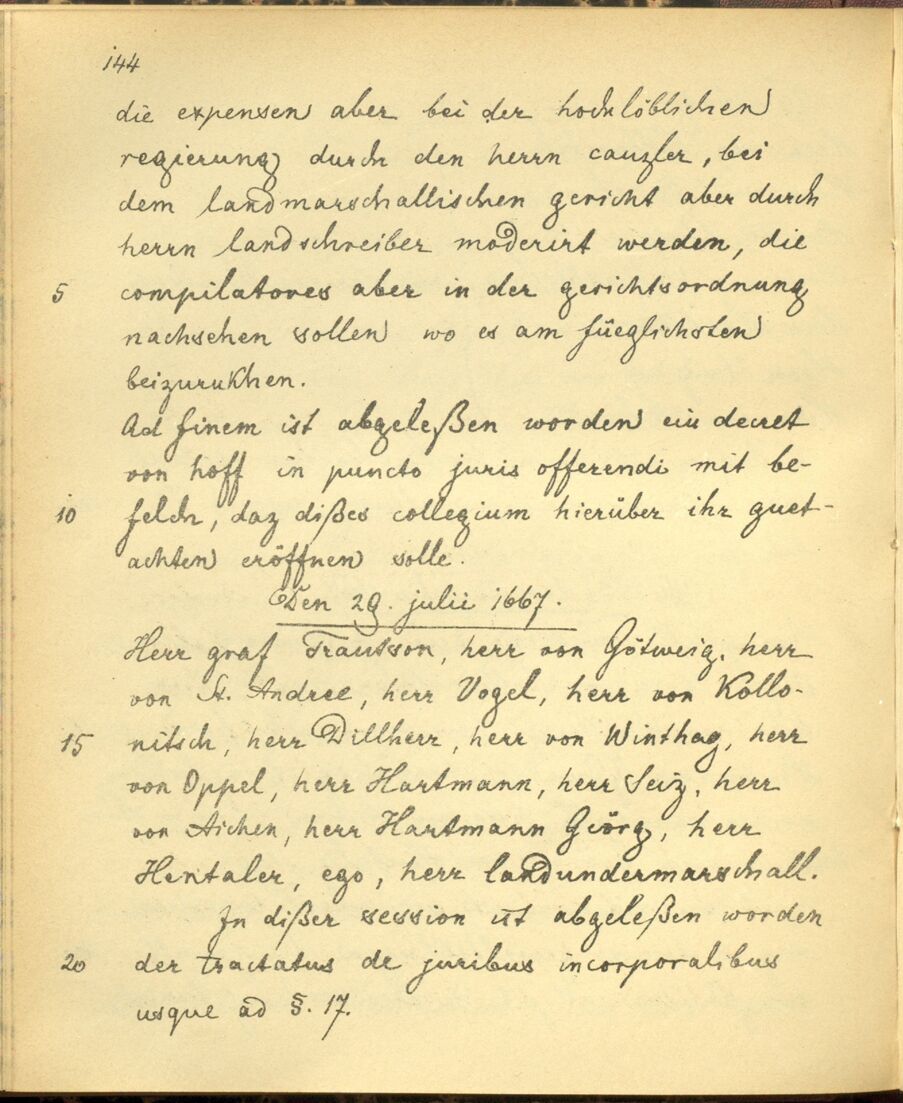 144
die expensen aber bei der hochlöblichen
regierung durch den herrn canzler, bei
dem landmarschallischen gericht aber durch
herrn landschreiber moderirt werden, die
5 compilatores aber in der gerichtsordnung
nachsehen sollen wo es am füeglichsten
beizurukhen.
Ad finem ist abgeleßen worden ein decret
von hoff in puncto juris offerendi mit be-
10 felch, daz dißes collegium hierüber ihr guet-
achten eröffnen solle.
Den 29. julii 1667.
Herr graf Trautson, herr von Götweig, herr
von St. Andree, herr Vogel, herr von Kollo-
15 nitsch, herr Dillherr, herr von Winthag, herr
von Oppel, herr Hartmann, herr Seiz, herr
von Aichen, herr Hartmann Geörg, herr
Hentaler, ego, herr landundermarschall.
In dißer session ist abgeleßen worden
20 der tractatus de juribus incorporalibus
usque ad §. 17.